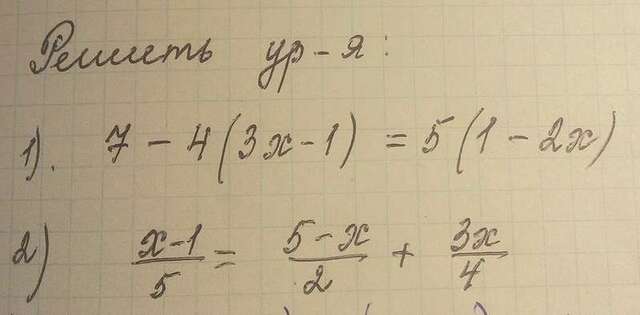 Решить ур-я:
1). 7 - 4(3x-1) = 5(1-2x)
2) x-1/5 = 5-x/2 + 3x/4